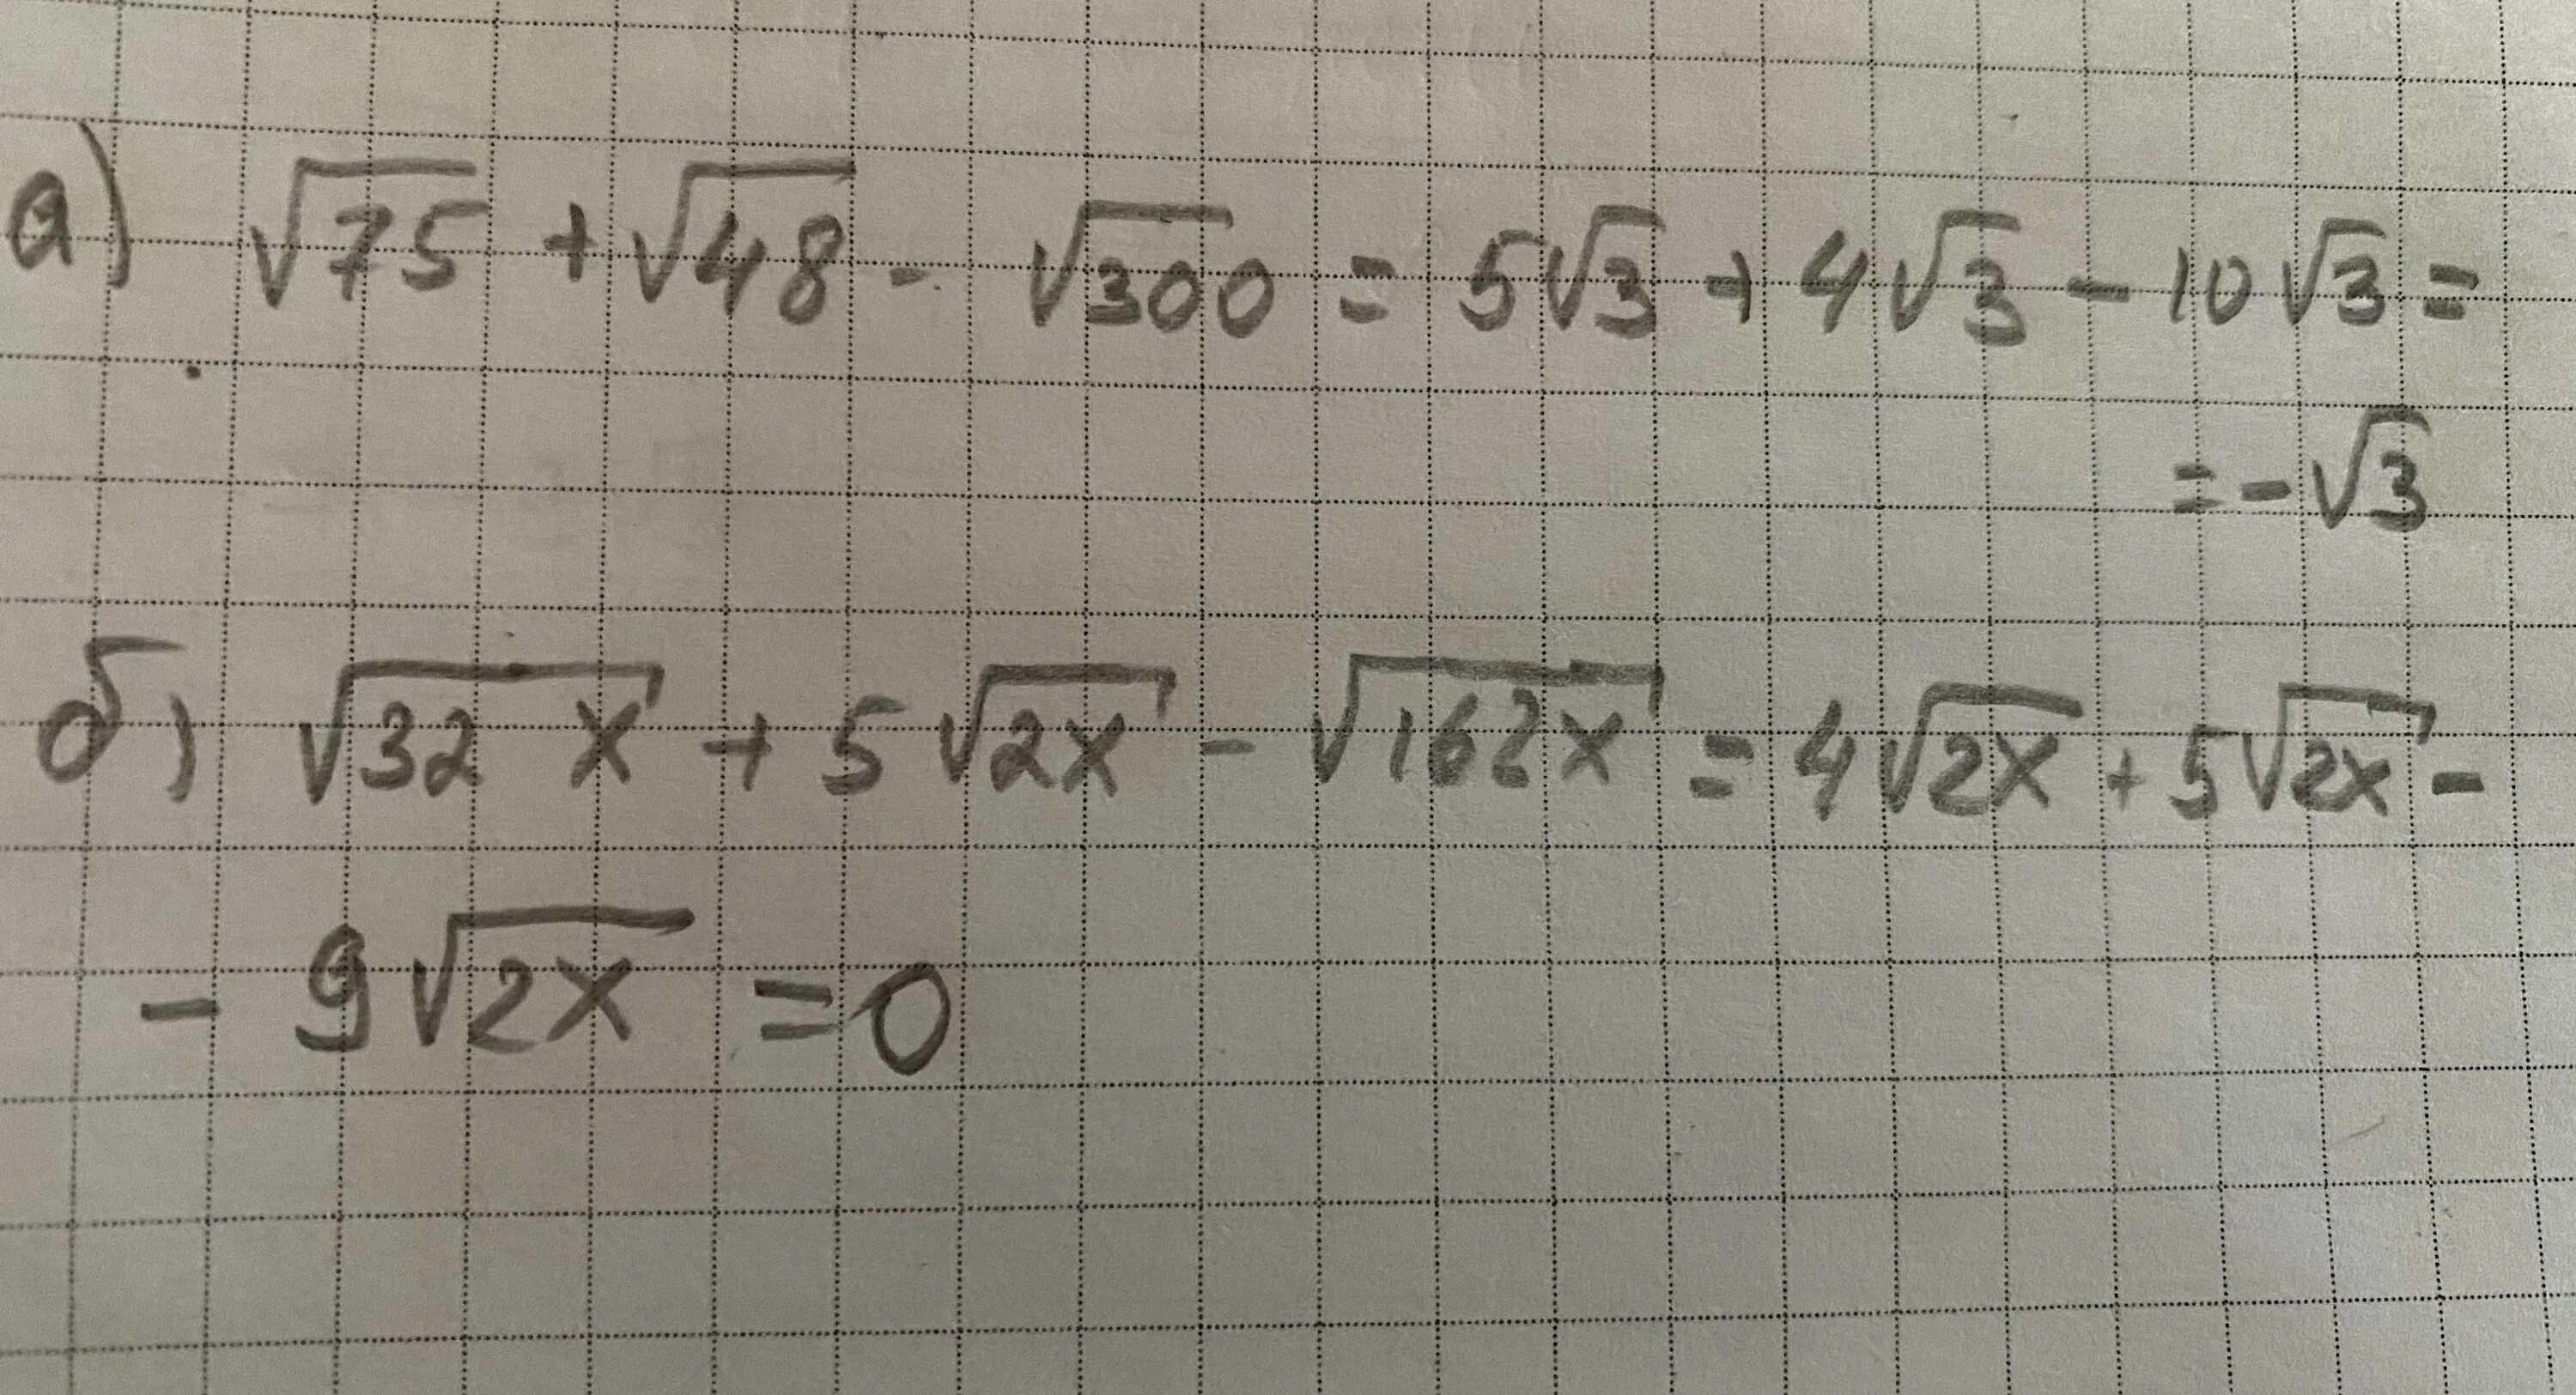 а) √75 + √48 - √300 = 5√3 + 4√3 - 10√3 =
= -√3
б) √32 x + 5√2x - √162x = 4√2x + 5√2x -
- 9√2x = 0